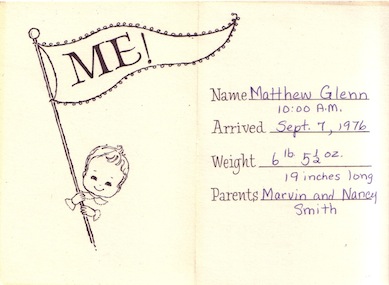 ME!
Name Matthew Glenn
10:00 A.M.
Arrived Sept. 7, 1976
Weight 6 lb 5½ oz.
19 inches long
Parents Marvin and Nancy
Smith